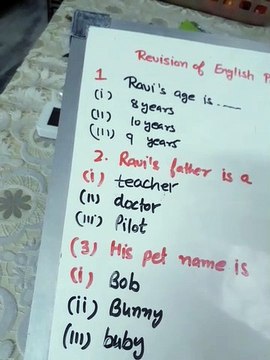 Revision of English P
1 Ravi's age is .....
(i) 8 years
(ii) 10 years
(iii) 9 years
2. Ravi's father is a
(i) teacher
(ii) doctor
(iii) Pilot
(3) His pet name is
(i) Bob
(ii) Bunny
(iii) buby